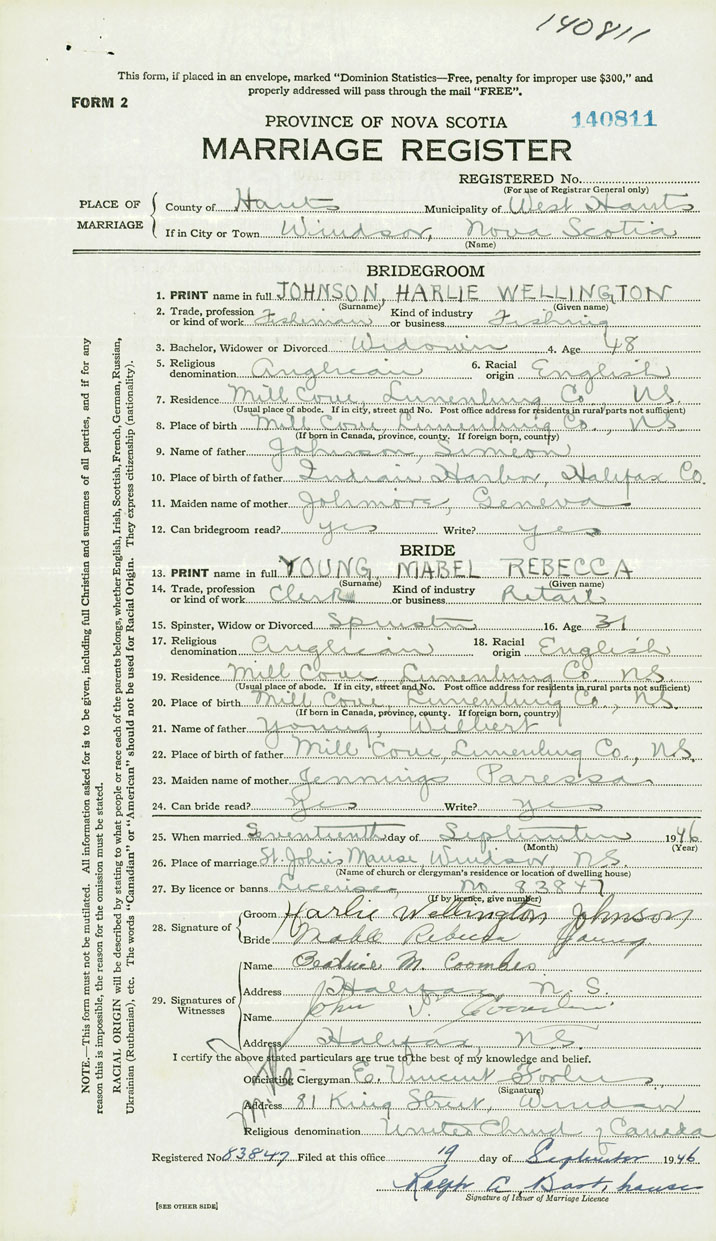 140811
This form, if placed in an envelope, marked "Dominion Statistics—Free, penalty for improper use $300," and
properly addressed will pass through the mail "FREE".
FORM 2
PROVINCE OF NOVA SCOTIA 140811
MARRIAGE REGISTER
REGISTERED No.
(For use of Registrar General only)
PLACE OF MARRIAGE
County of Hants Municipality of West Hants
If in City or Town Windsor, Nova Scotia
(Name)
BRIDEGROOM
1. PRINT name in full JOHNSON, HARLIE WELLINGTON
(Surname) (Given name)
2. Trade, profession or kind of work Fisherman Kind of industry or business Fishing
3. Bachelor, Widower or Divorced Widower 4. Age 48
5. Religious denomination Anglican 6. Racial origin English
7. Residence Mill Cove, Lunenburg Co. NS.
(Usual place of abode. If in city, street and No. Post office address for residents in rural parts not sufficient)
8. Place of birth Mill Cove, Lunenburg Co., NS
(If born in Canada, province, county. If foreign born, country)
9. Name of father Johnson, Simeon
10. Place of birth of father Indian Harbor, Halifax Co.
11. Maiden name of mother Geneva
12. Can bridegroom read? yes Write? yes
BRIDE
13. PRINT name in full YOUNG MABEL REBECCA
(Surname) (Given name)
14. Trade, profession or kind of work Clerk Kind of industry or business Retail
15. Spinster, Widow or Divorced Spinster 16. Age 31
17. Religious denomination Anglican 18. Racial origin English
19. Residence Mill Cove, Lunenburg Co. NS.
(Usual place of abode. If in city, street and No. Post office address for residents in rural parts not sufficient)
20. Place of birth Mill Cove, Lunenburg Co., NS.
(If born in Canada, province, county. If foreign born, country)
21. Name of father Young, Wilbert
22. Place of birth of father Mill Cove, Lunenburg Co., NS.
23. Maiden name of mother Jennings Paressa
24. Can bride read? Yes Write? yes
25. When married Seventeenth day of September 1946
(Month) (Year)
26. Place of marriage St. John's Manse Windsor N.S.
(Name of church or clergyman's residence or location of dwelling house)
27. By licence or banns License, No. 83847
(If by licence, give number)
28. Signature of
Groom Harlie Wellington Johnson
Bride Mable Rebecca Young
29. Signatures of Witnesses
Name Beatrice M. Coombes
Address Halifax N. S.
Name John
Address Halifax, N.S.
I certify the above stated particulars are true to the best of my knowledge and belief.
Officiating Clergyman E. Vincent Forbes
(Signature)
Address 81 King Street, Windsor
Religious denomination United Church of Canada
Registered No 83847 Filed at this office 19 day of September 1946
Ralph A
Signature of Issuer of Marriage Licence
[SEE OTHER SIDE]
NOTE.—This form must not be mutilated. All information asked for is to be given, including full Christian and surnames of all parties, and if for any
reason this is impossible, the reason for the omission must be stated.
RACIAL ORIGIN will be described by stating to what people or race each of the parents belongs, whether English, Irish, Scottish, French, German, Russian,
Ukrainian (Ruthenian), etc. The words "Canadian" or "American" should not be used for Racial Origin. They express citizenship (nationality).